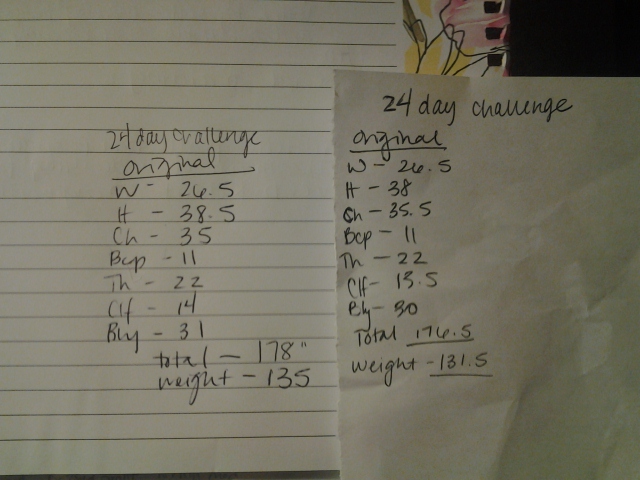 24 day challenge
original
W - 26.5
H - 38.5
Ch - 35
Bcp - 11
Th - 22
Clf - 14
Bly - 31
total - 178"
weight - 135
24 day challenge
original
W - 26.5
H - 38
Ch - 35.5
Bcp - 11
Th - 22
Clf - 13.5
Bly - 30
Total 176.5
weight - 131.5